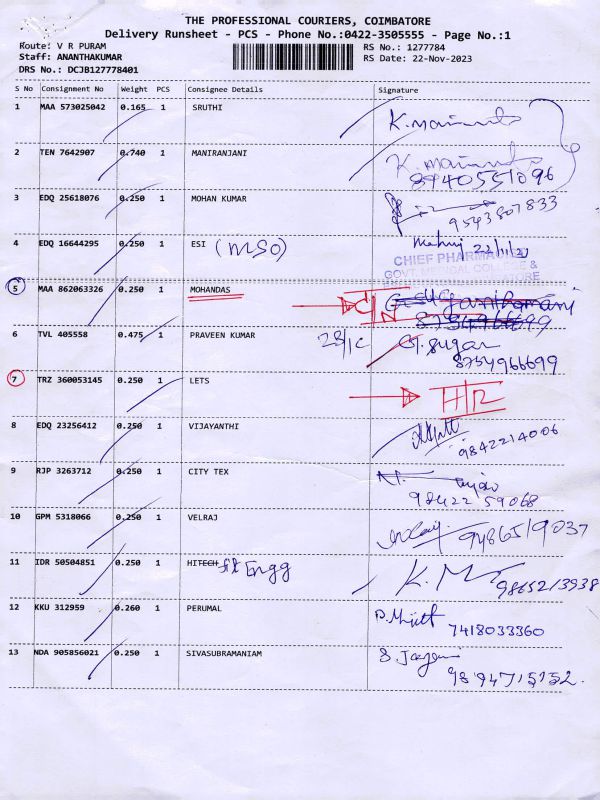 THE PROFESSIONAL COURIERS, COIMBATORE
Delivery Runsheet - PCS - Phone No.:0422-3505555 - Page No.:1
Route: V R PURAM
RS No.: 1277784
Staff: ANANTHAKUMAR
RS Date: 22-Nov-2023
DRS No.: DCJB127778401
S No Consignment No Weight PCS Consignee Details Signature
1 MAA 573025042 0.165 1 SRUTHI
2 TEN 7642907 0.740 1 MANIRANJANI
8940551096
3 EDQ 25618076 0.250 1 MOHAN KUMAR
9543807833
4 EDQ 16644295 0.250 1 ESI (MSO)
CHIEF PHARMACIST
GOVT. MEDICAL COLLEGE &
5 MAA 862063326 0.250 1 MOHANDAS
6 TVL 405558 0.475 1 PRAVEEN KUMAR
8754966699
7 TRZ 360053145 0.250 1 LETS
8 EDQ 23256412 0.250 1 VIJAYANTHI
9842214006
9 RJP 3263712 0.250 1 CITY TEX
98422 59068
10 GPM 5318066 0.250 1 VELRAJ
9486519037
11 IDR 50504851 0.250 1 HITECH Engg
9865213938
12 KKU 312959 0.260 1 PERUMAL
7418033360
13 NDA 905856021 0.250 1 SIVASUBRAMANIAM
9894715152.